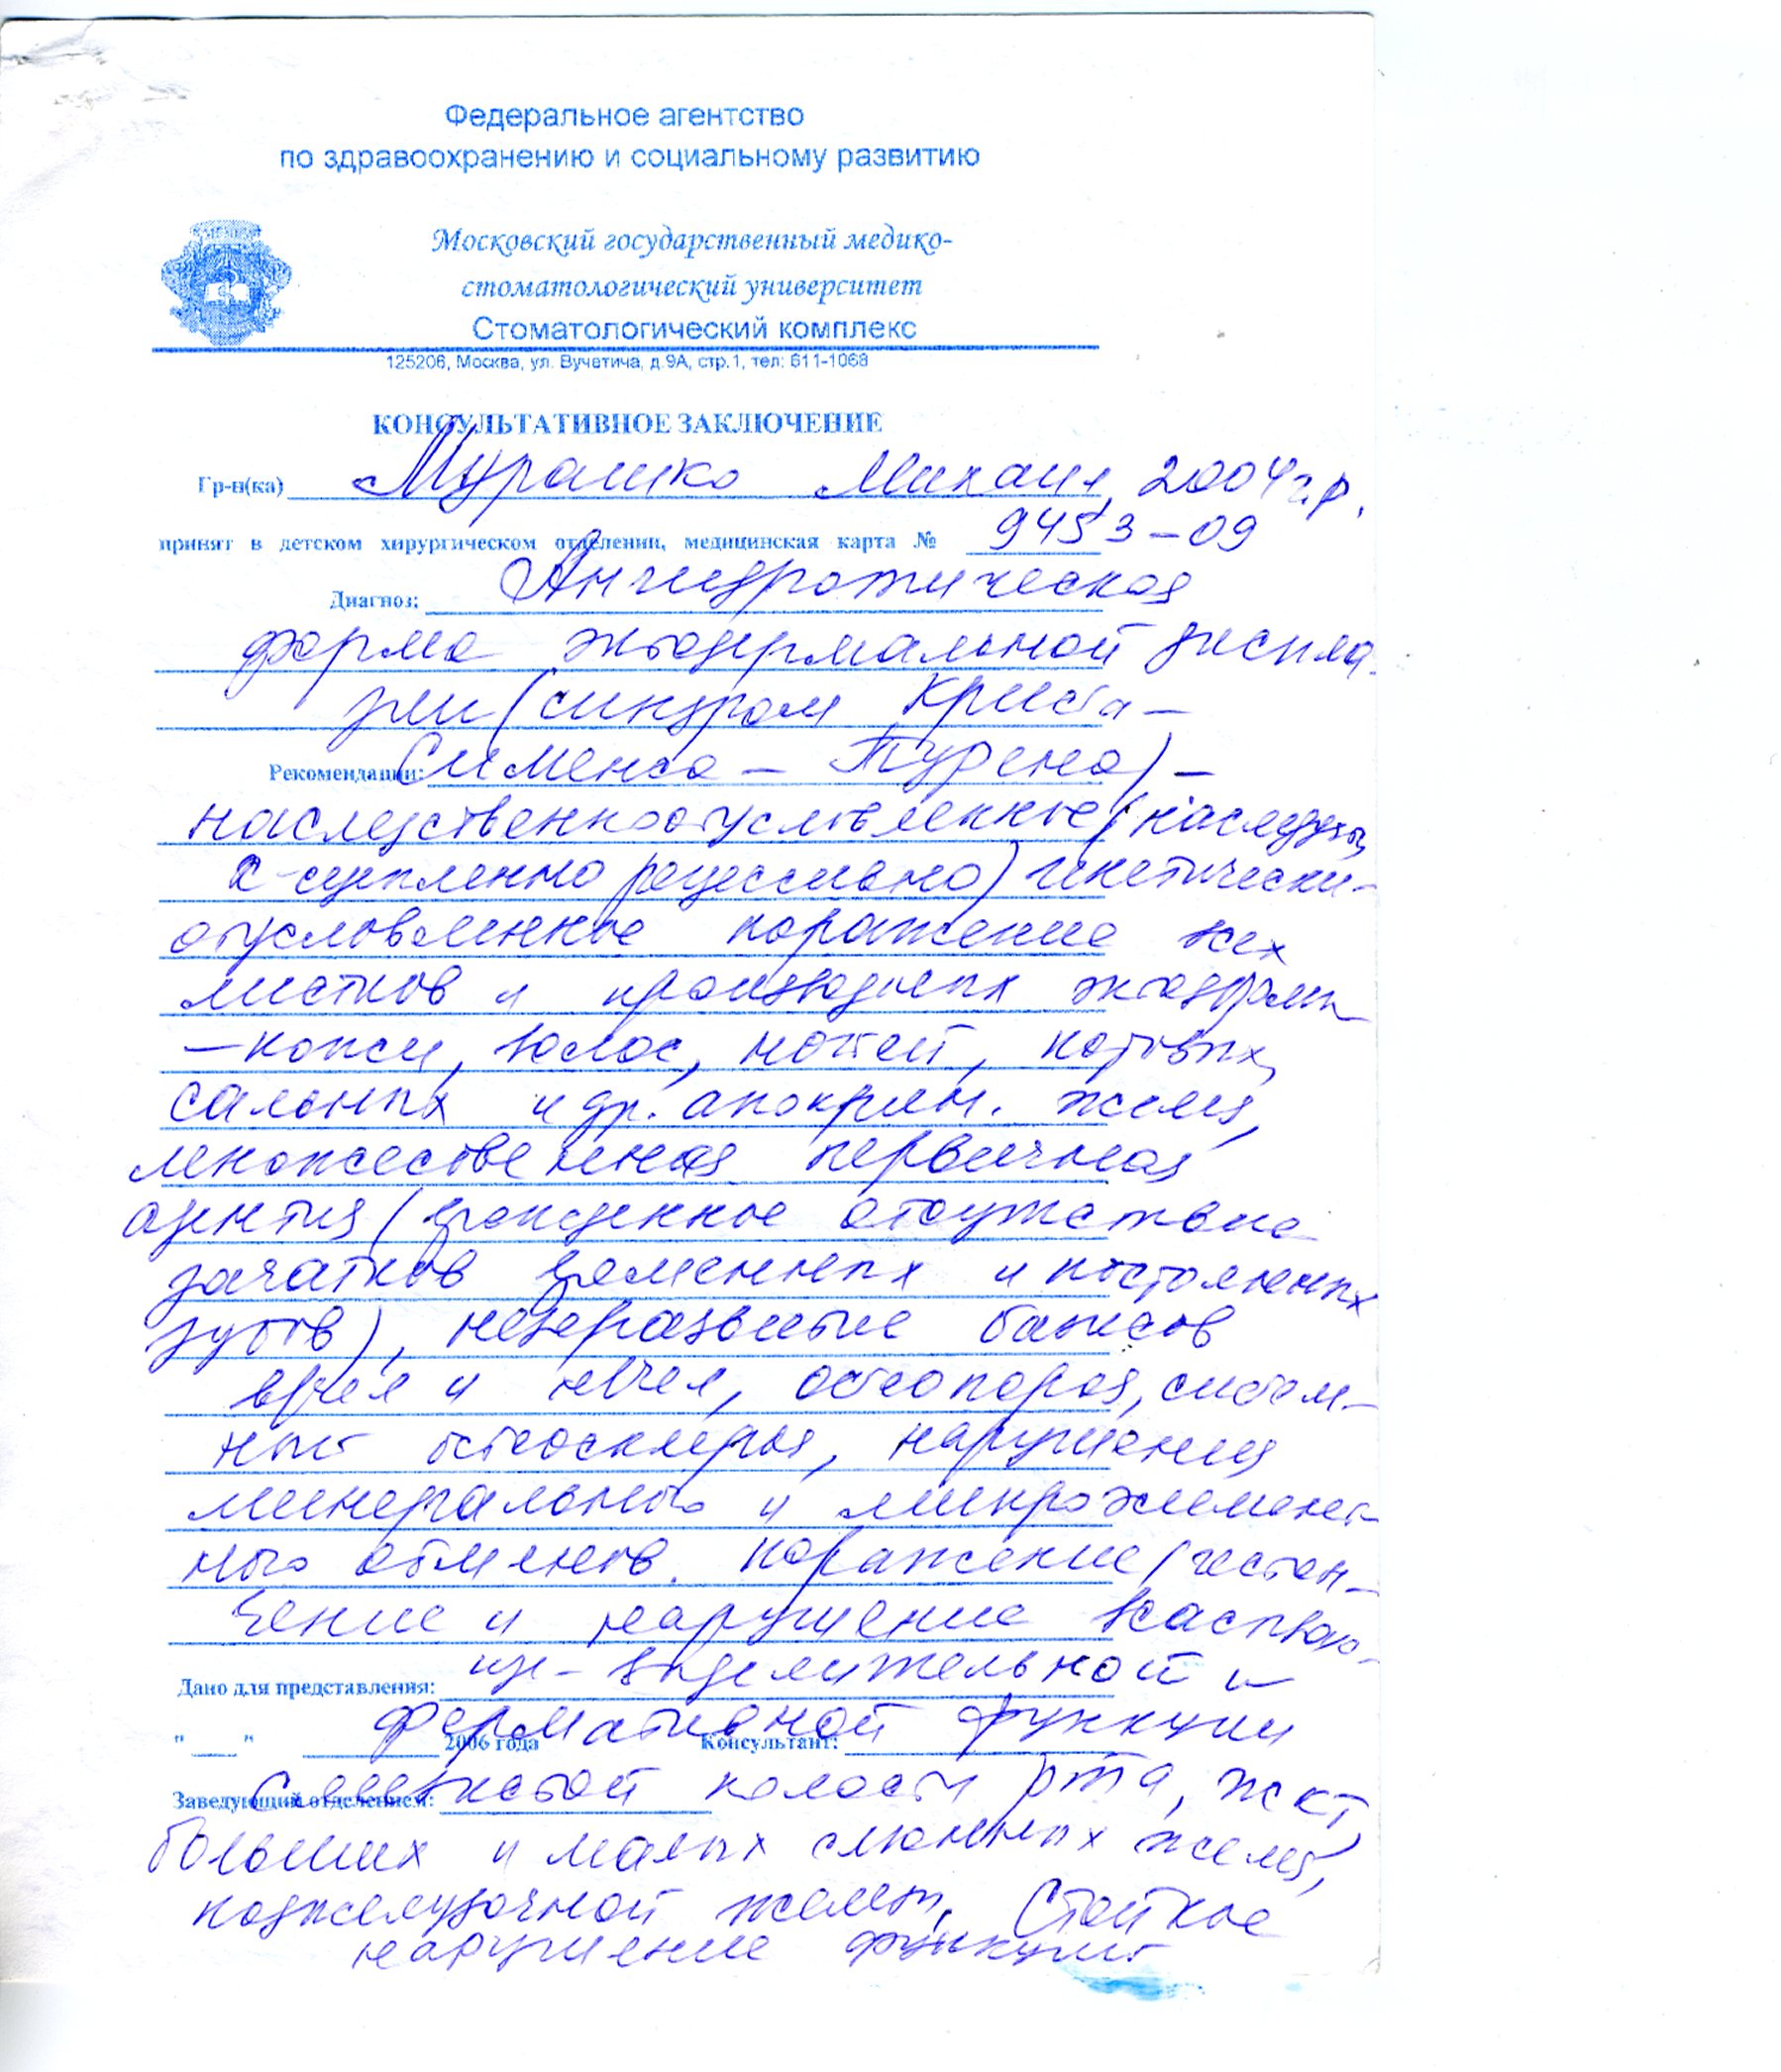 Федеральное агентство
по здравоохранению и социальному развитию
Московский государственный медико-
стоматологический университет
Стоматологический комплекс
125206, Москва, ул. Вучетича, д.9А, стр.1, тел: 611-1068
КОНСУЛЬТАТИВНОЕ ЗАКЛЮЧЕНИЕ
Гр-н(ка) Мурашко Михаил, 2004 г.р.
принят в детском хирургическом отделении, медицинская карта № 9453-09
Диагноз: Ангидротическая
форма эктодермальной диспла-
зии (синдром Криста-
Рекомендации: Сименса - Турена) -
наследственнообусловленное (наследуем
х-сцепленно рецессивно) генетически-
обусловленное поражение всех
листков и производных эктодермы
- кожи, волос, ногтей, потовых,
сальных и др. апокрин. желез,
множественная первичная
адентия (врожденное отсутствие
зачатков временных и постоянных
зубов), недоразвитие базисов
в/чел и н/чел, остеопороз, систем-
ный остеосклероз, нарушения
минерального и микроэлемент-
ного обменов. Поражение (истон-
чение и нарушение
Дано для представления: -выделительной и
" " 2006 года ферментативной функции Консультант:
Заведующий отделением: слизистой полости рта, ЖКТ,
больших и малых слюнных желез,
поджелудочной железы. Стойкое
нарушение функций